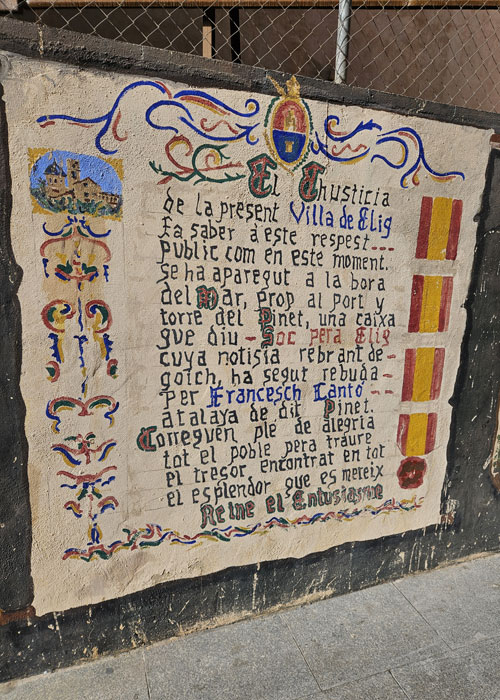 El Chusticia
de la present Villa de Elig
Fa saber á este respest
Public com en este moment.
Se ha aparegut a la bora
del Mar, prop al port y
torre del Pinet, una caixa
que diu - Soc pera Elig
cuya notisia rebrant de-
goich, ha segut rebuda-
Per Francesch Cantó-
atalaya de dit Pinet.
Correguen ple de alegria
tot el poble pera traure
el tresor encontrat en tot
el esplendor que es mereix
Reine el Entusiasme